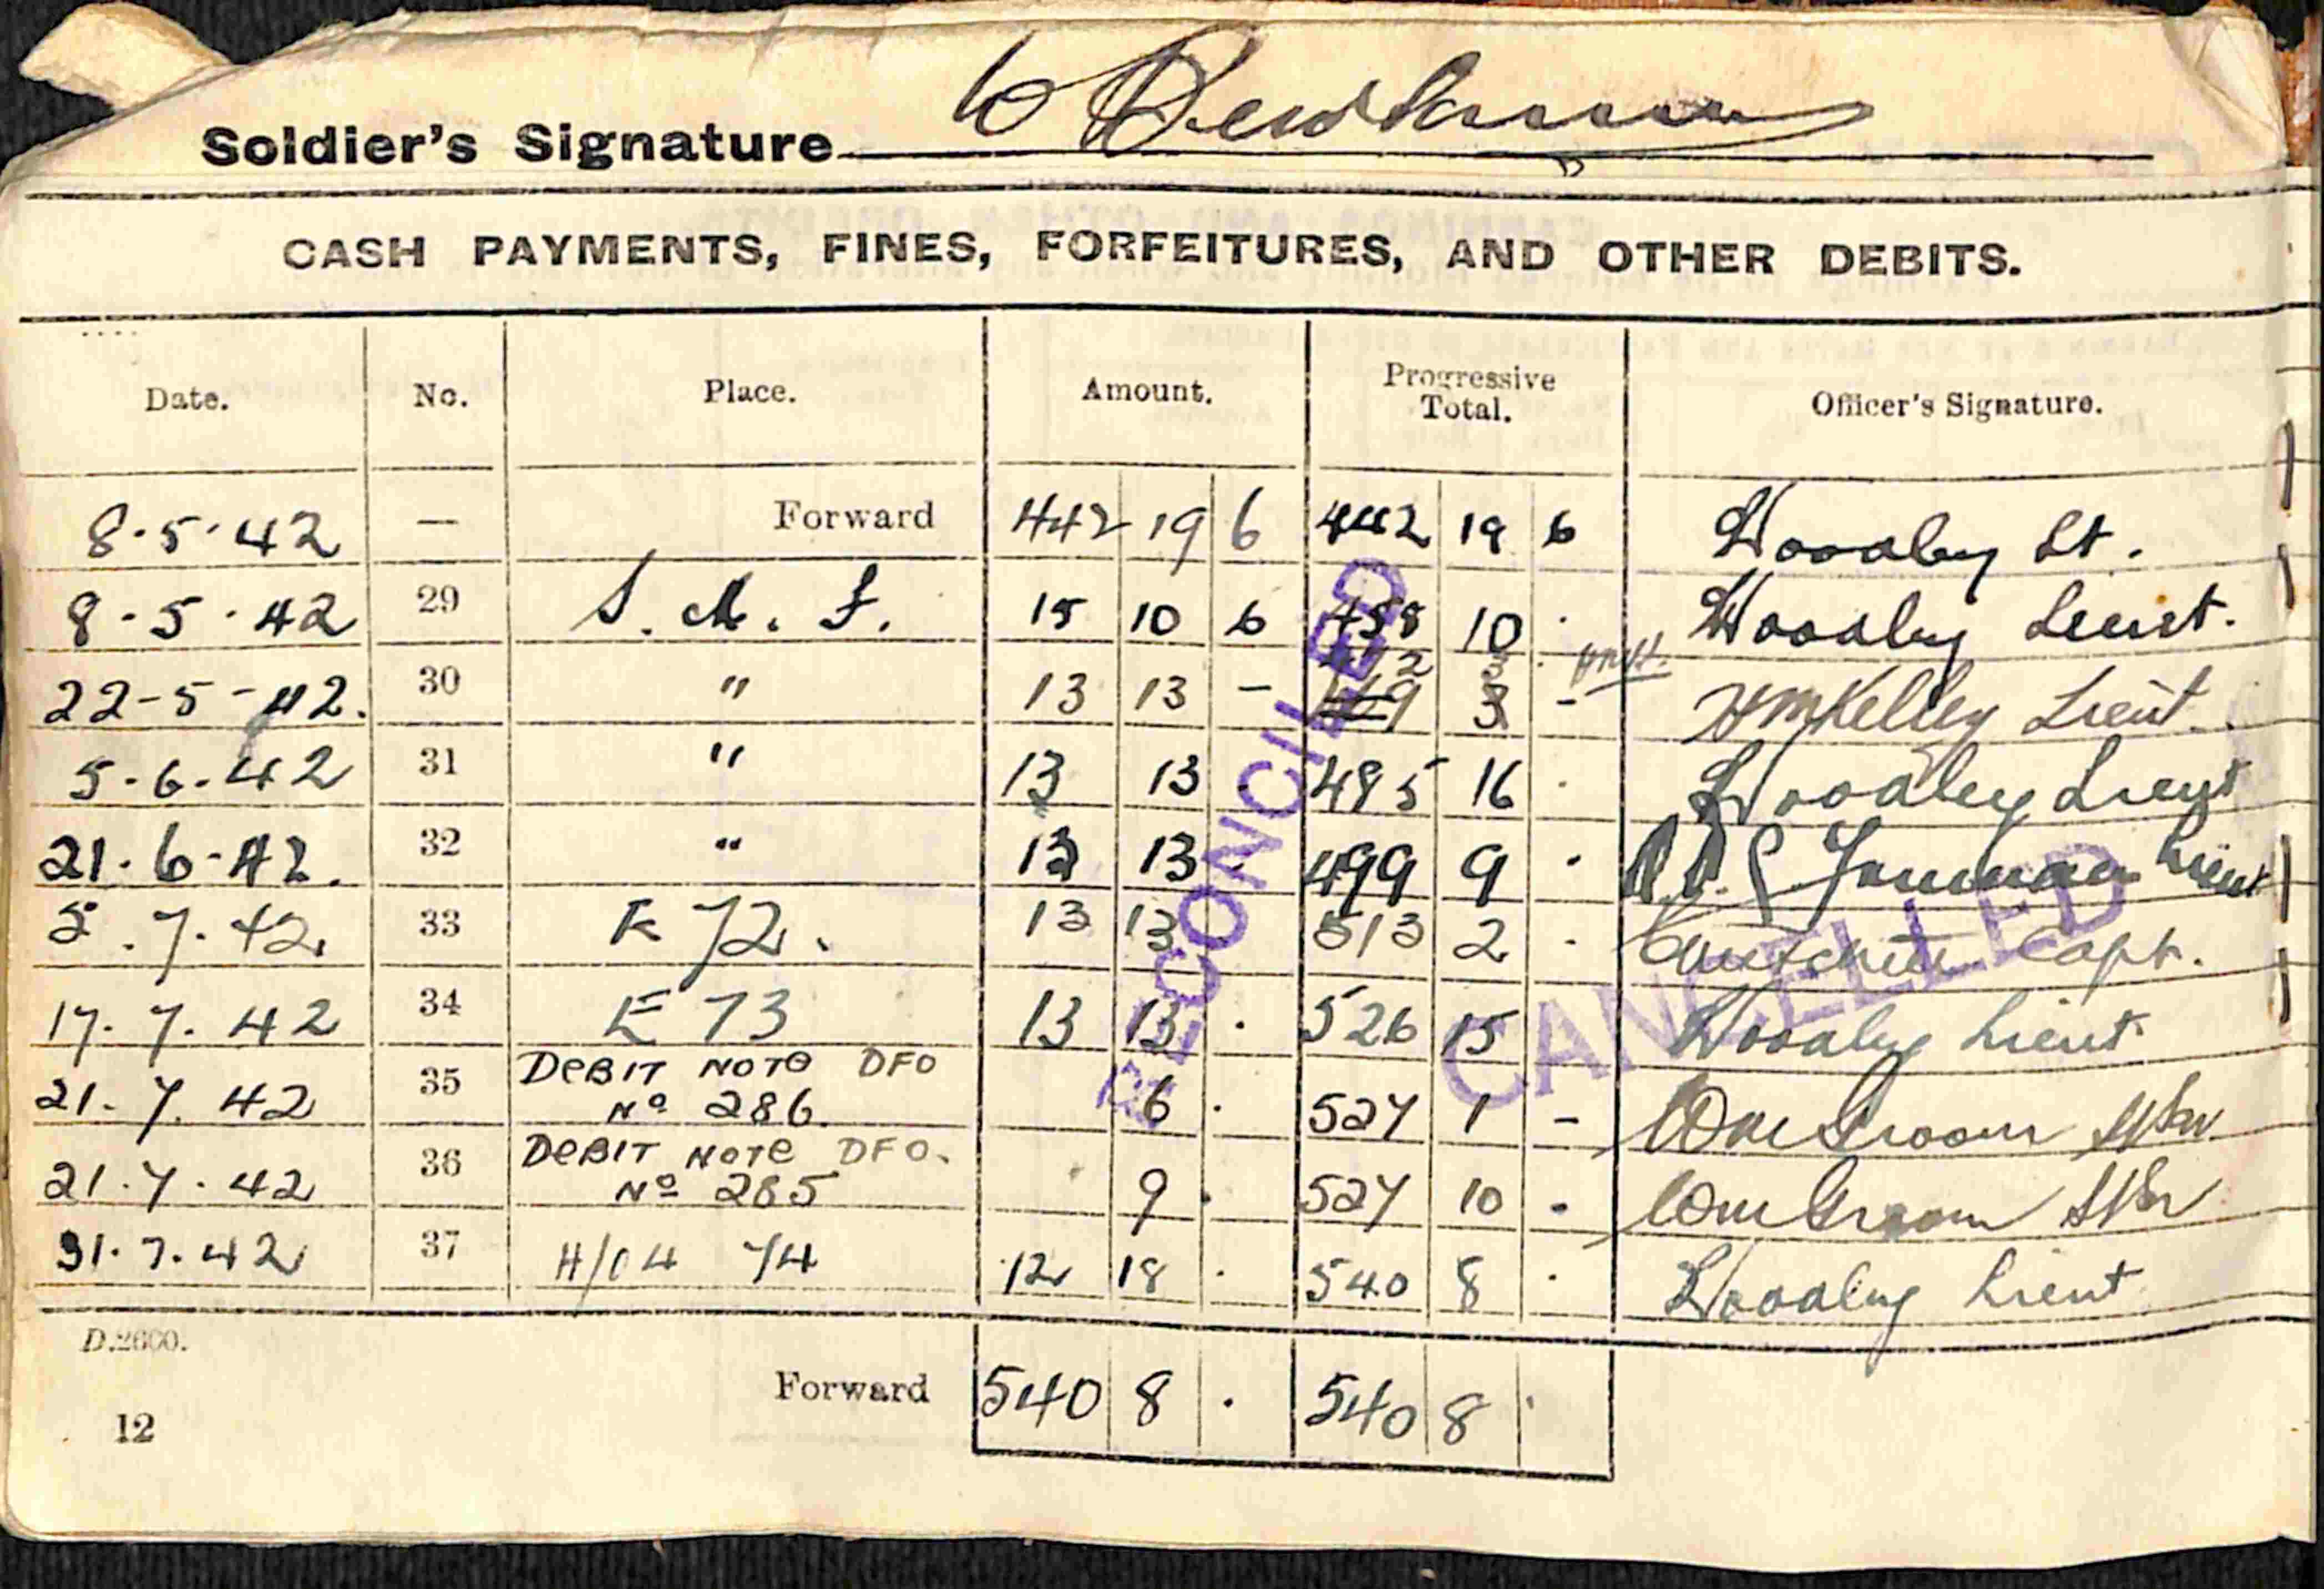 Soldier's Signature
CASH PAYMENTS, FINES, FORFEITURES, AND OTHER DEBITS.
Date. No. Place. Amount. Progressive Total. Officer's Signature.
8.5.42 — Forward 442 19 6 442 19 6 Lt.
8.5.42 29 15 10 6 458 10 .
22-5-42. 30 " 13 13 - 472 3 - Lieut.
5.6.42 31 " 13 13 . 485 16 . Lieut
21.6.42. 32 " 13 13 . 499 9 . Lieut
5.7.42. 33 K 72. 13 13 513 2 . Capt.
17.7.42 34 E 73 13 13 . 526 15 Lieut
21.7.42 35 DEBIT NOTE DFO No 286. 6 . 527 1 -
21.7.42 36 DEBIT NOTE DFO. No 285 9 . 527 10 -
31.7.42 37 74 12 18 . 540 8 . Lieut
RECONCILED
CANCELLED
D.2600.
Forward 540 8 . 540 8 .
12